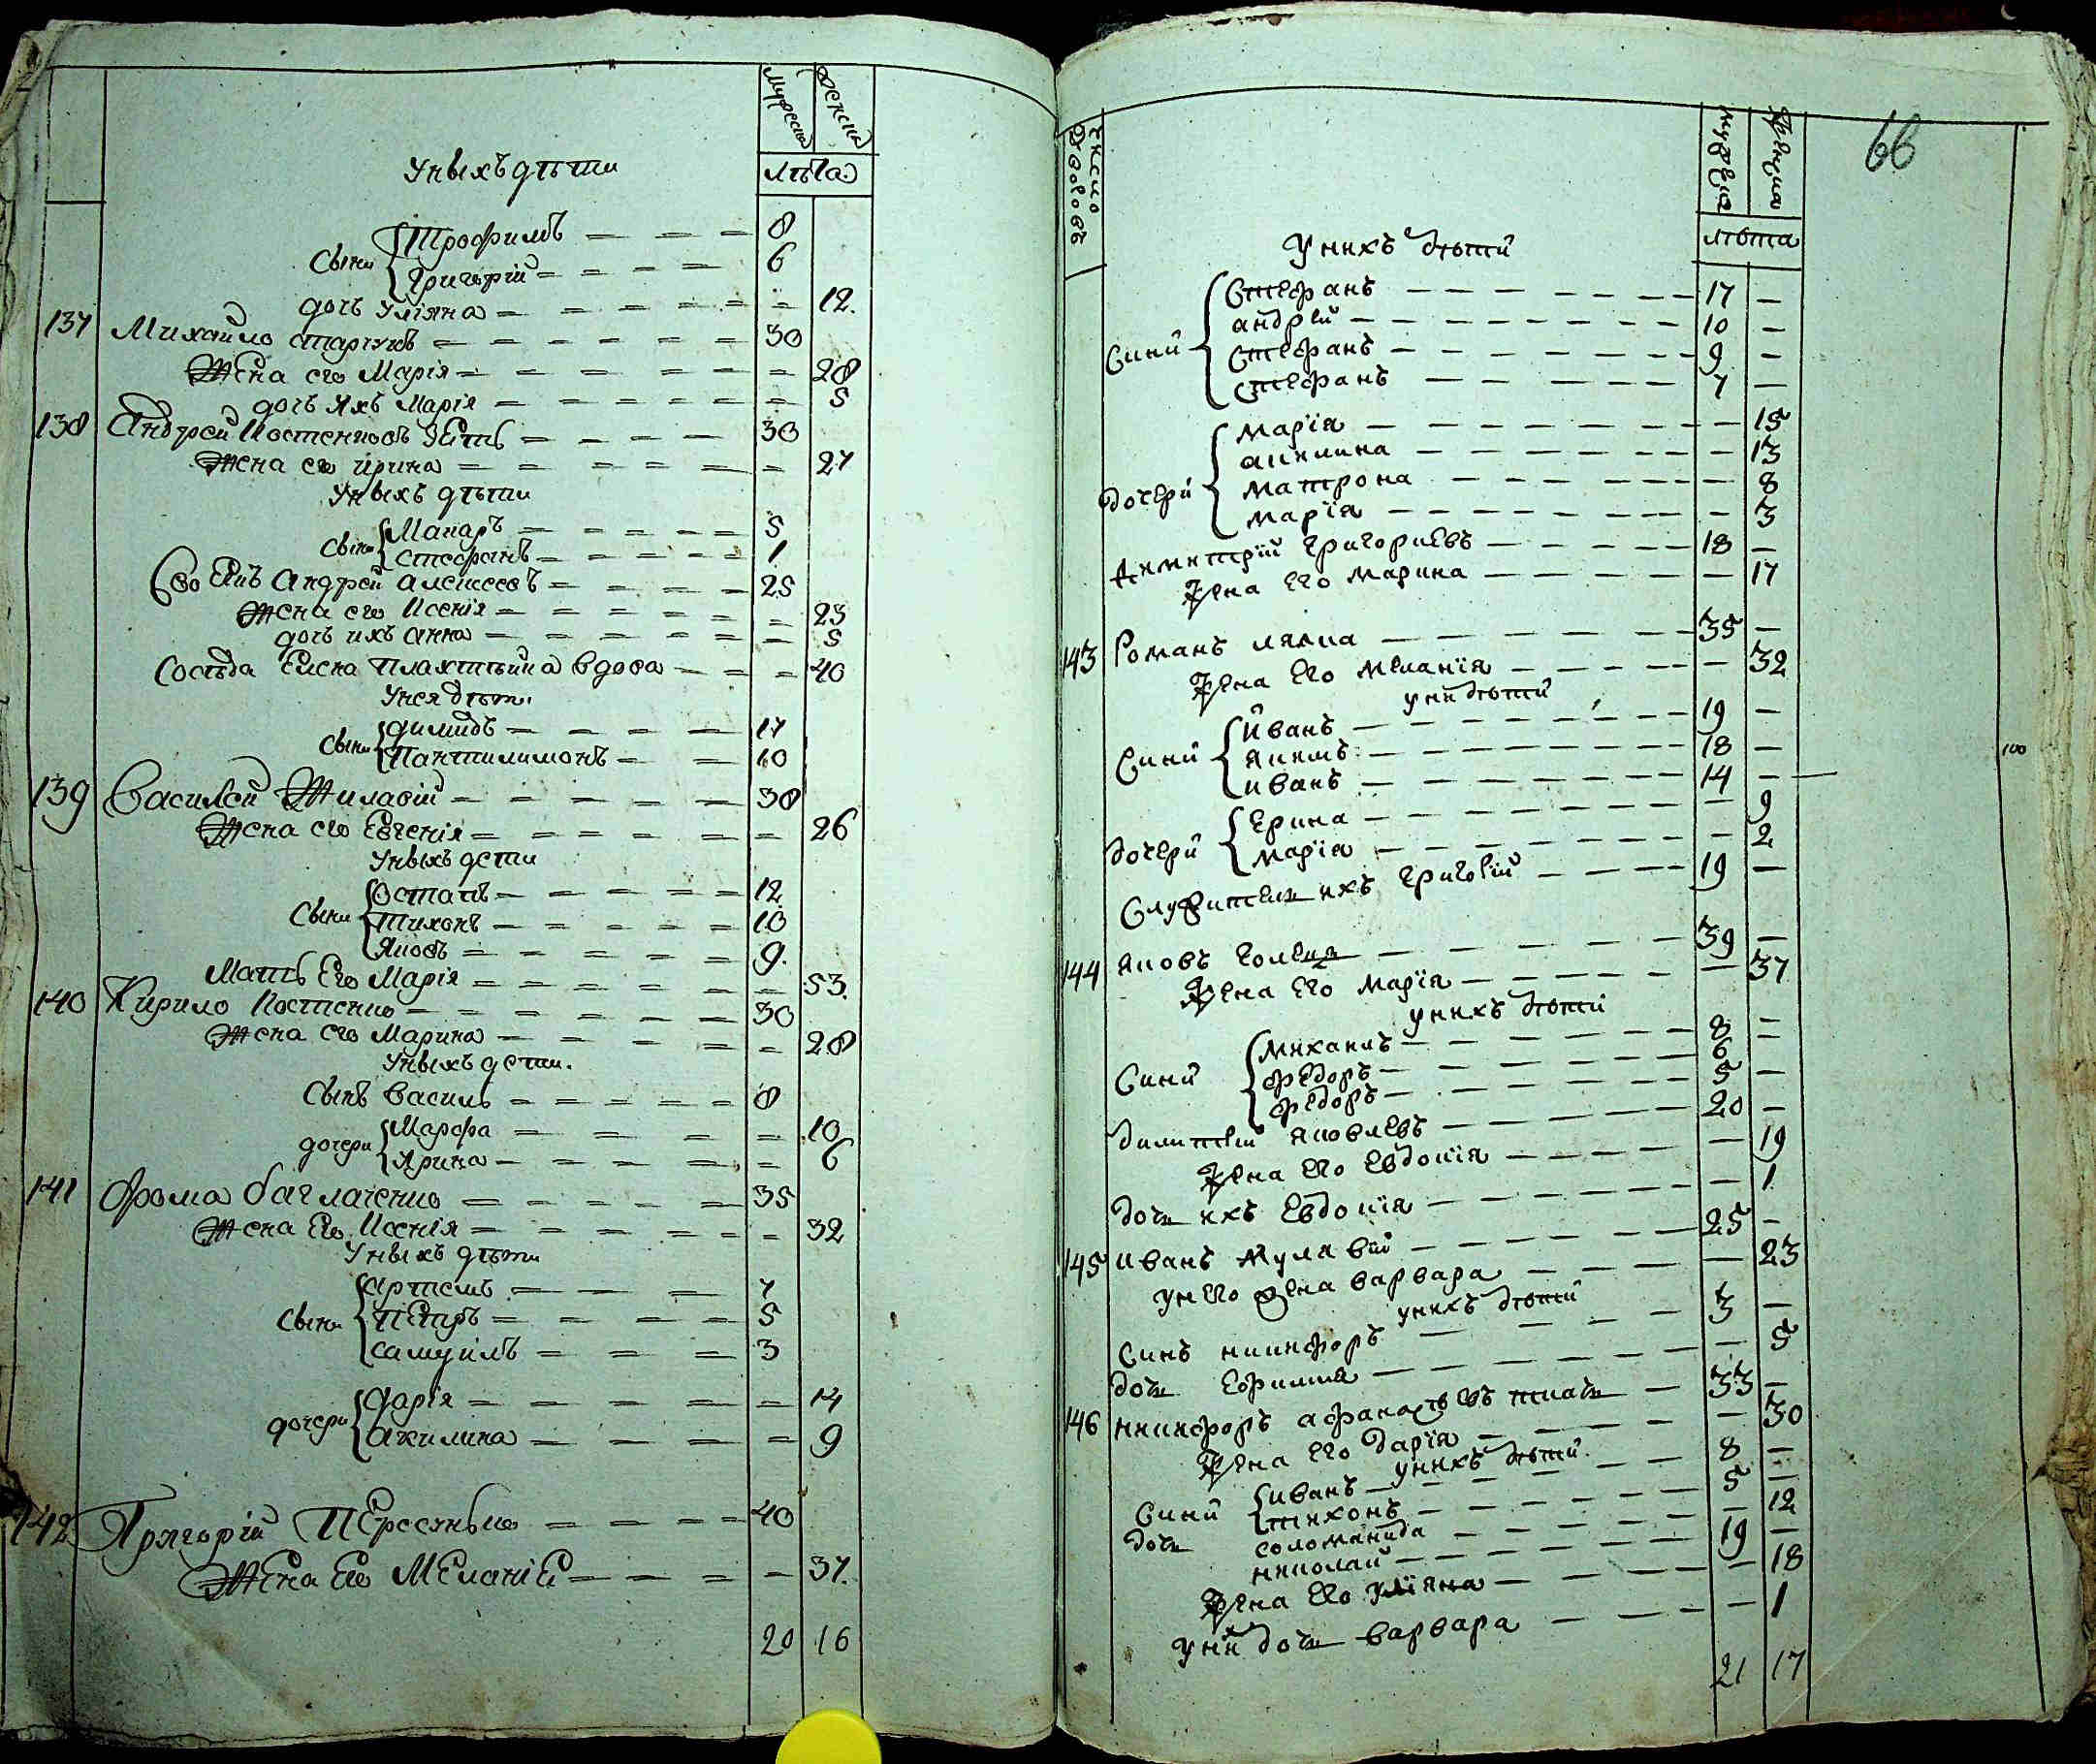 Мужеска Женска
лѣта
У ныхъ дѣти
Сыни Трофимъ 8
Григорій 6
дочъ Уліяна 12
137 Михайло 30
Жена его Марія 28
дочъ ихъ Марія 5
138 Андрей Костенковъ зять 30
Жена его ирина 27
У ныхъ дѣти
Сыни Макаръ 5
Стефанъ 1
Андрей алексеевъ 25
Жена его Ксенія 23
дочъ ихъ анна 5
Сосѣда Елена вдова 40
У нея дѣти
Сыни 17
Пантилимонъ 10
139 Василей Жилавій 38
Жена его Евгенія 26
У ныхъ дети
Сыни Остапъ 12
Тихонъ 10
Яковъ 9
Мать Его Марія 53
140 Кирило Костенко 30
Жена его Марина 28
У ныхъ дети
Сынъ Василь 8
дочери Марфа 10
Ярина 6
141 Фома баглаченко 35
Жена Его Ксенія 32
У ныхъ дѣти
Сыни Артемъ 7
Петръ 5
Самуилъ 3
дочери Дарія 14
Акилина 9
142 Григорій 40
Жена Его Меланія 37
20 16
число дворовъ
мужеска женска
66
лѣта
У нихъ дѣти
Сини Стефанъ 17 —
андрей 10 —
Стефанъ 9 —
Стефанъ 7 —
дочери Марія — 15
акилина — 13
Матрона — 8
Марія — 3
Димитрій григориевъ 18 —
Жена его Марина — 17
143 Романъ лялка 35 —
Жена Его меланія — 32
у ни дѣти
Сини иванъ 19 —
Якимъ 18 —
иванъ 14 —
дочери Ерина — 9
Марія — 2
Служитель ихъ григорій 19 —
144 Яковъ 39 —
Жена Его Марія — 37
у нихъ дѣти
Сини михаилъ 8 —
федоръ 6 —
федоръ 5 —
яковлевъ 20 —
Жена Его Евдокія — 19
дочь ихъ Евдокія — 1
145 иванъ жулавій 25 —
у него жена варвара — 23
у нихъ дѣти
Синъ никифоръ 3 —
дочь Ефимия — 5
146 никифоръ афанасіевъ ткачь 33 —
Жена его дарія — 30
у нихъ дѣти
Сини иванъ 8 —
тихонъ 5 —
дочь соломанида — 12
николай 19 —
Жена Его уліяна — 18
у них дочь варвара — 1
21 17
100